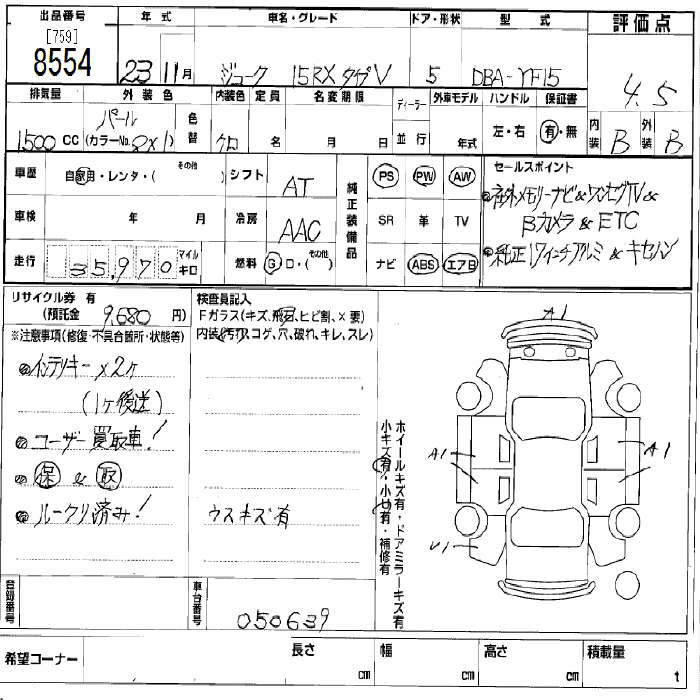 出品番号 年式 車名・グレード ドア・形状 型式 評価点
[759]
8554 23 11月 ジューク 15RX タイプV 5 DBA-YF15 4.5
排気量 外装色 内装色 定員 名変期限 ディーラー 外車モデル ハンドル 保証書 内装 外装
1500 CC パール (カラーNo. QX1) 色替 クロ 名 月 日 並行 年式 左・右 有・無 B B
車歴 自家用・レンタ・( その他 ) シフト AT 純正装備品 PS PW AW セールスポイント
車検 年 月 冷房 AAC SR 革 TV
走行 35,970 マイル キロ 燃料 G D・(その他) ナビ ABS エアB
社外メモリーナビ&ワンセグTV&
Bカメラ & ETC
純正17インチアルミ & キセノン
リサイクル券 有
(預託金 9,680 円)
※注意事項(修復・不具合箇所・状態等)
インテリキー×2ケ
(1ケ後送)
ユーザー買取車!
保 & 取
ルークリ済み!
検査員記入
Fガラス(キズ、飛石、ヒビ割、×要)
内装(汚れ、コゲ、穴、破れ、キレ、スレ)
ウスキズ有
ホイールキズ有・ドアミラーキズ有
小キズ有・小凹有・補修有
A1
A1
A1
U1
登録番号 車台番号 050639
希望コーナー 長さ cm 幅 cm 高さ cm 積載量 t